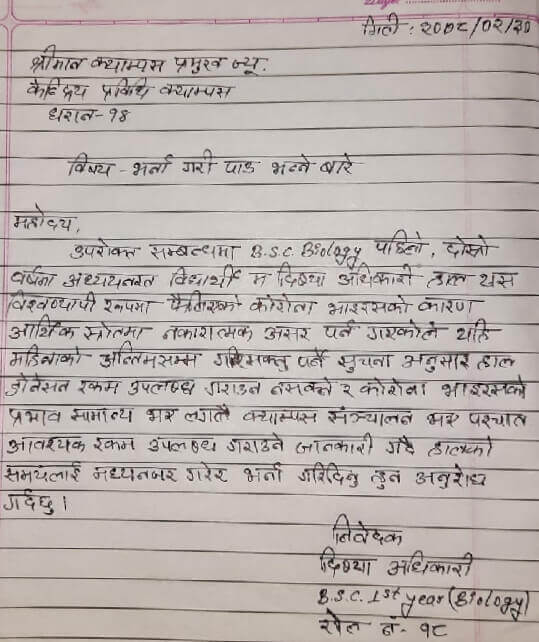 मिती : २००८/०२/३०
श्रीमान क्याम्पस प्रमुख ज्यू.
केन्द्रिय प्रविधि क्याम्पस
धरान-१४
विषय - भर्ना गरी पाऊ भन्ने बारे
महोदय,
उपरोक्त सम्बन्धमा B.S.C. Biology पहिलो, दोस्रो
वर्षमा अध्ययनरत विद्यार्थी म दिव्या अधिकारी हाल यस
विश्वव्यापी रुपमा फैलिएको कोरोना भाइरसको कारण
आर्थिक स्रोतमा नकारात्मक असर पर्न गएकोले यहि
महिनाको अन्तिमसम्म गरिसक्नु पर्ने सुचना अनुसार हाल
डोनेसन रकम उपलब्ध गराउन नसक्ने र कोरोना भाइरसको
प्रभाव सामान्य भए लगतै क्याम्पस संञ्चालन भए पश्चात
आवश्यक रकम उपलब्ध गराउने जानकारी गर्दै हालको
समयलाई मध्यनजर गरेर भर्ना गरिदिनु हुन अनुरोध
गर्दछु ।
निवेदक
दिव्या अधिकारी
B.S.C. 1st year (Biology)
रोल नं- १८